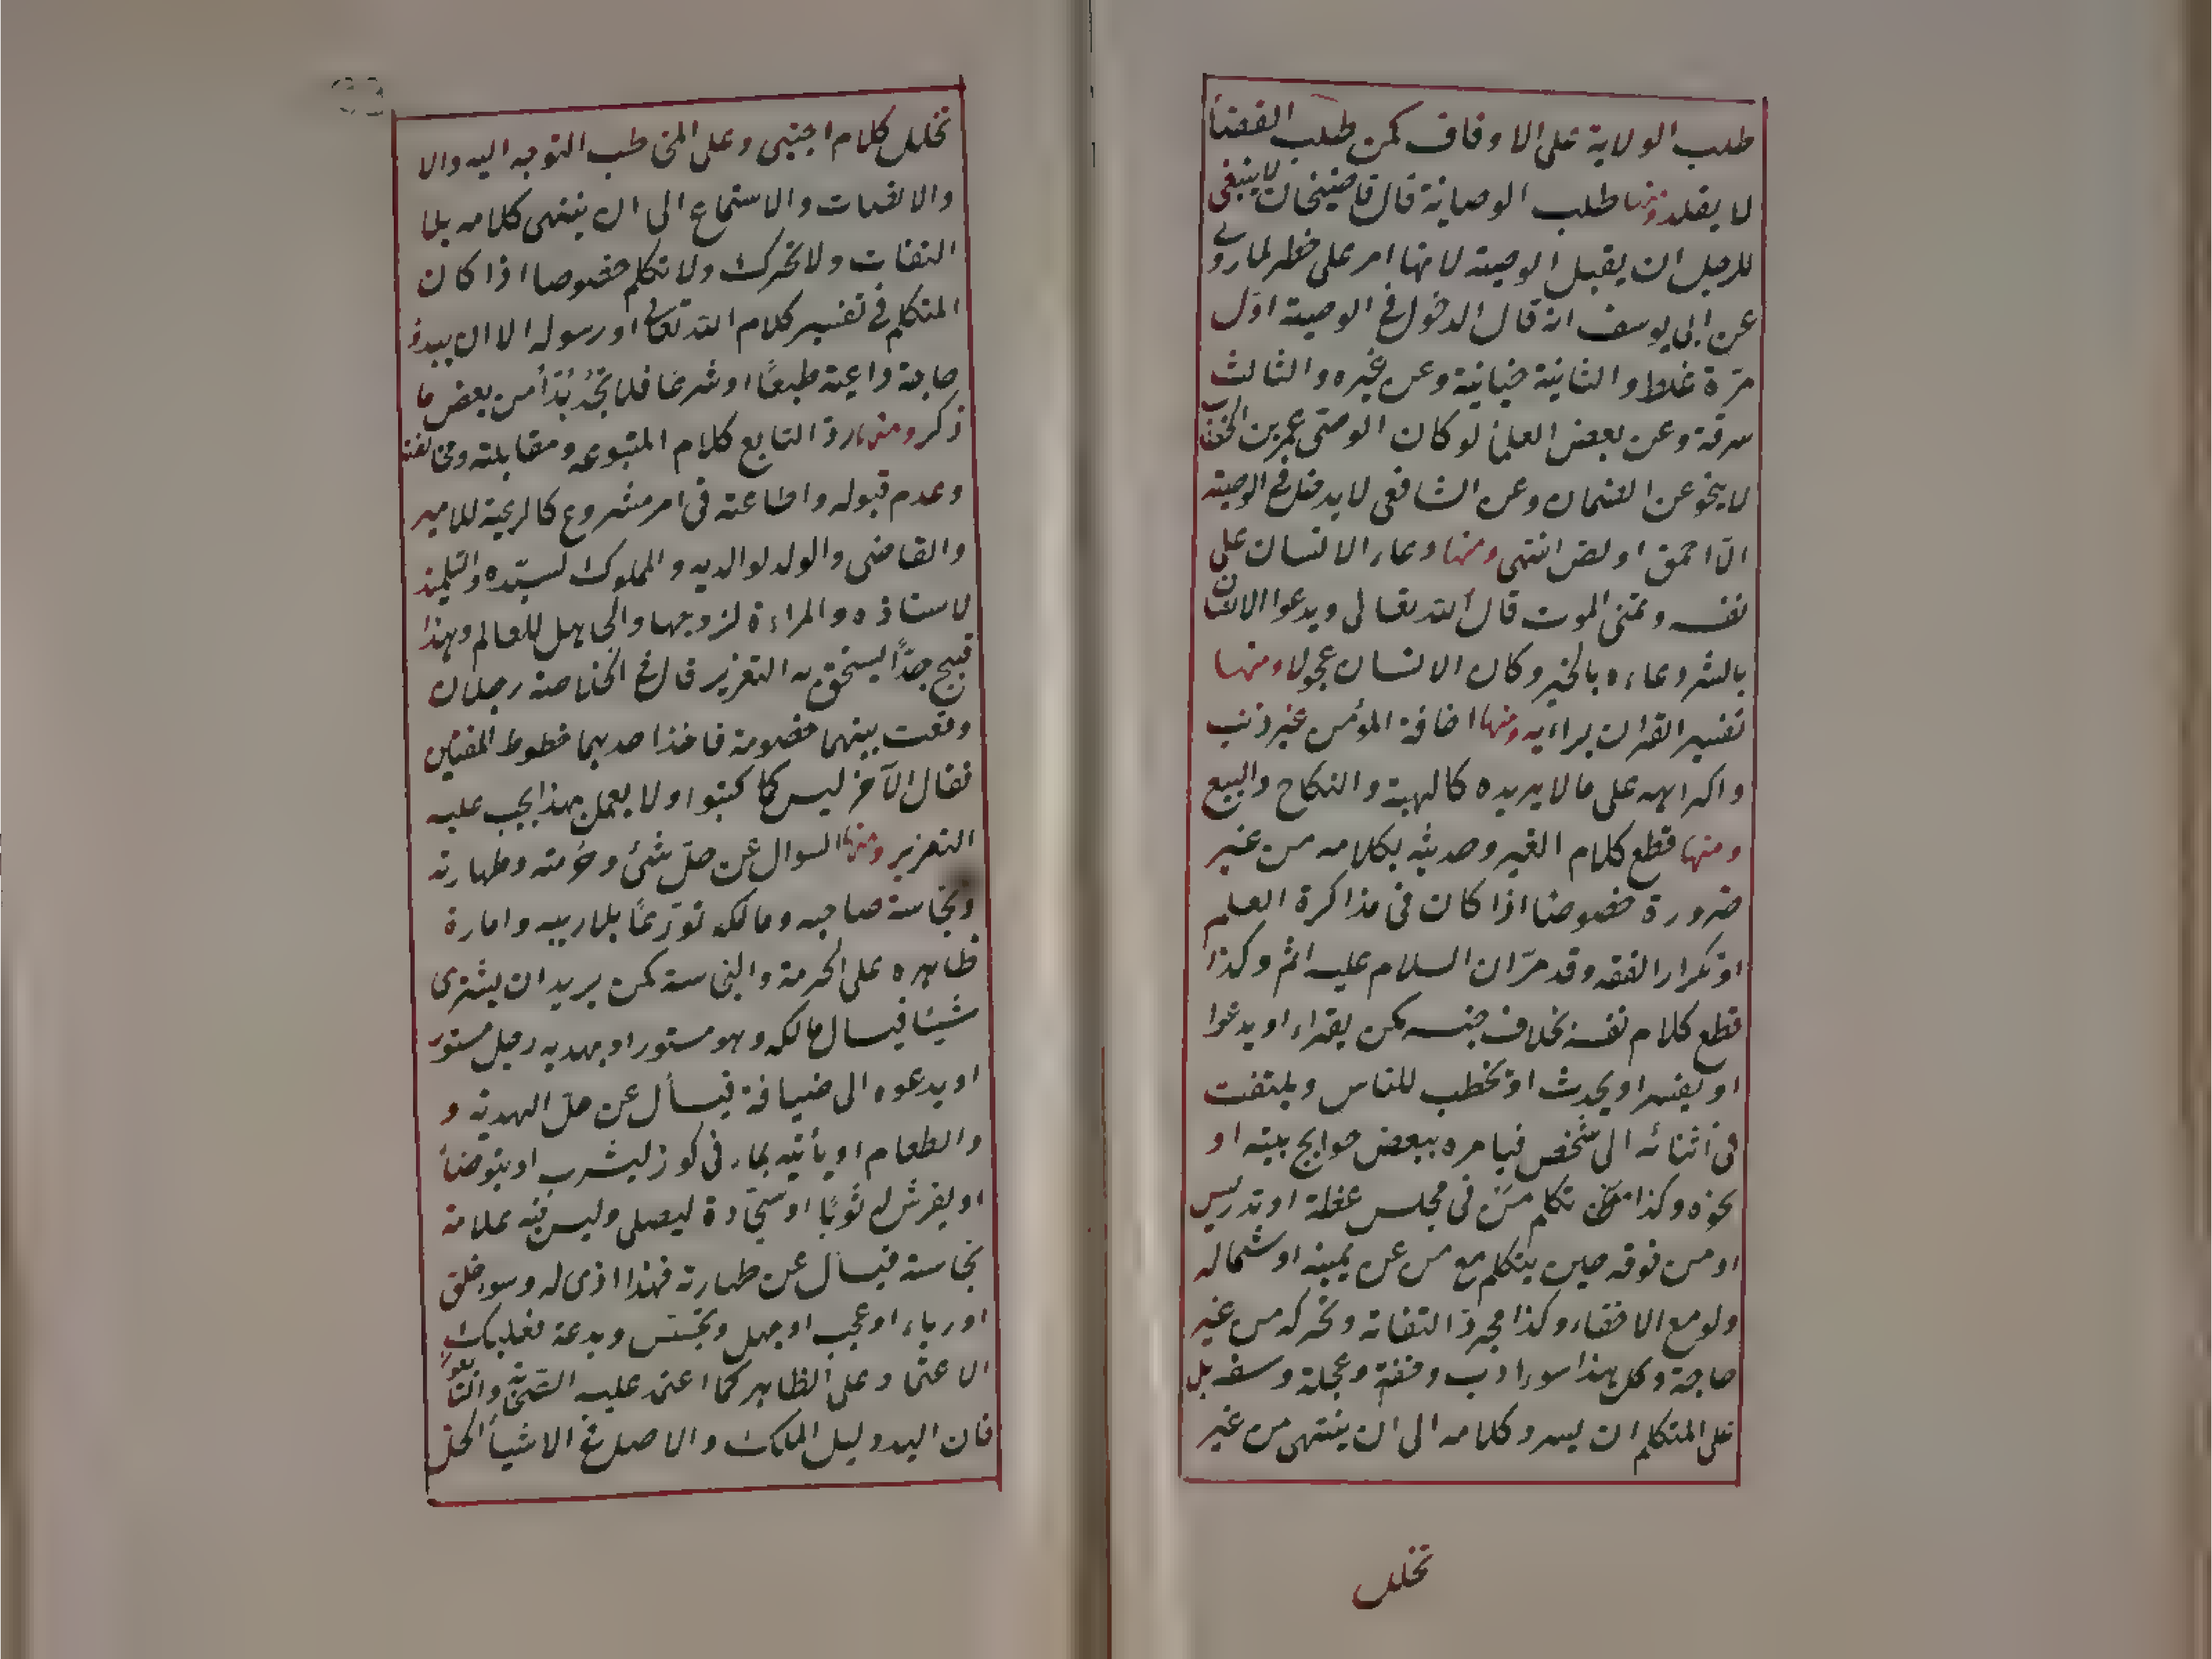 طلب الولاية على الاوقاف كمن طلب القضأ
لا يقلد ومنها طلب الوصاية قال قاضيخان لا ينبغى
للرجل ان يقبل الوصية لانها امر على خطر لما روى
عن ابى يوسف انه قال الدخول فى الوصية اوّل
مرّة غلط والثانية خيانية وعن غيره والثالث
سرقة وعن بعض العلمأ لو كان الوصى عمر بن الخطاب
لا ينجو عن الضمان وعن الشافعى لا يدخل فى الوصية
الّا احمق او لص انتهى ومنها دعاء الانسان على
نفسه وتمنى الموت قال الله تعالى ويدعوا الانسان
بالشر دعاءه بالخير وكان الانسان عجولا ومنها
تفسير القران برأيه ومنها اخافة المؤمن غير ذنب
واكراهه على مالا يريده كالهبة والنكاح والبيع
ومنها قطع كلام الغير وحديثه بكلامه من غير
ضرورة خصوصا اذا كان فى مذاكرة العلم
او تكرار الفقه وقد مرّ ان السلام عليه اثم وكذا
قطع كلام نفسه بخلاف جنسه كمن يقراء او يدعوا
او يفسر او يحدث او يخطب للناس ويلتفت
فى اثنائه الى شخص فيامره ببعض حوايج بيته او
نحوه وكذا تكلم من فى مجلس عظة او تدريس
او من فوقه حين يتكلم مع من عن يمينه او شماله
ولو مع الاخفاء وكذا مجرد التفاته وتحركه من غير
حاجة وكل هذا سوء ادب وخفة وعجلة وسفه بل
على المتكلم ان يسرد كلامه الى ان ينتهى من غير
تخلل
تخلل كلام اجنبى وعلى المخاطب التوجه اليه والا
والانصات والاستماع الى ان ينتهى كلامه بلا
التفات ولا تحرك ولا تكلم خصوصا اذا كان
المتكلم فى تفسير كلام الله تعالى او رسوله الا ان يبدؤ
حاجة داعية طبعًا او شرعًا فلا تجد بدّا من بعض ما
ذكر ومنها ردّ التابع كلام المتبوعه ومقابلته ومخالفته
وعدم قبوله واطاعته فى امر مشروع كالرعية للامير
والقاضى والولد لوالديه والمملوك لسيّده والتلميذ
لاستاذه والمراءة لزوجها والجاهل للعالم وهذا
قبيح جدّا يستحق به التعزير قال فى الخلاصة رجلان
وقعت بينهما خصومة فاخذ احدهما خطوط المفتين
فقال الآخر ليس كما كتبوا ولا يعمل بهذا يجب عليه
التعزير ومنها السوال عن حلّ شئ وحرمته وطهارته
ونجاسة صاحبه ومالكه تورّعًا بلا ريبه وامارة
ظاهره على الحرمة والنجاسة كمن يريد ان يشترى
شيئا فيسال مالكه وهو مستور او يهديه رجل مستور
او يدعوه الى ضيافة فيسأل عن حلّ الهدية و
والطعام او يأتيه بماء فى كوز ليشرب او يتوضأ
او يفرش له ثوبًا او سجّادة ليصلى وليس فيه علامة
نجاسة فيسال عن طهارته فهذا اذى له وسوء خلق
او رياء او عجب او جهل وتجسّس وبدعة فعليك
الاعتماد على الظاهر كما اعتمد عليه الصحابة والتابعون
فان اليد دليل الملك والاصل فى الاشيأ الحل